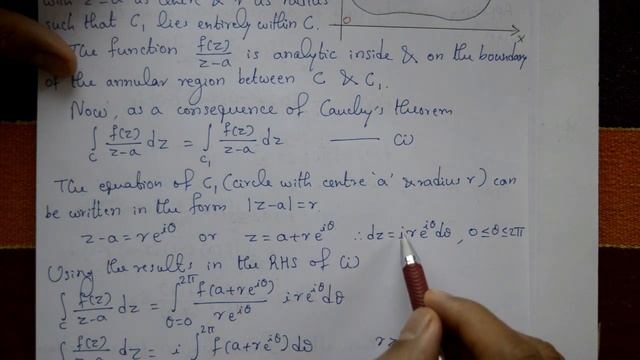 with z=a as centre & r as radius
such that C₁ lies entirely within C.
o
x
The function f(z)/(z-a) is analytic inside & on the boundary
of the annular region between C & C₁.
Now, as a consequence of Cauchy's theorem
∫_C f(z)/(z-a) dz = ∫_C₁ f(z)/(z-a) dz —— (i)
The equation of C₁ (circle with centre 'a' & radius r) can
be written in the form |z-a|=r.
z-a=re^{iθ} or z=a+re^{iθ} ∴dz=ire^{iθ}dθ, 0≤θ≤2π
Using the results in the RHS of (i)
∫_C f(z)/(z-a) dz = ∫_{θ=0}^{2π} f(a+re^{iθ})/(re^{iθ}) ire^{iθ}dθ
∫ f(z)/(z-a) dz = i ∫^{2π} f(a+re^{iθ})dθ